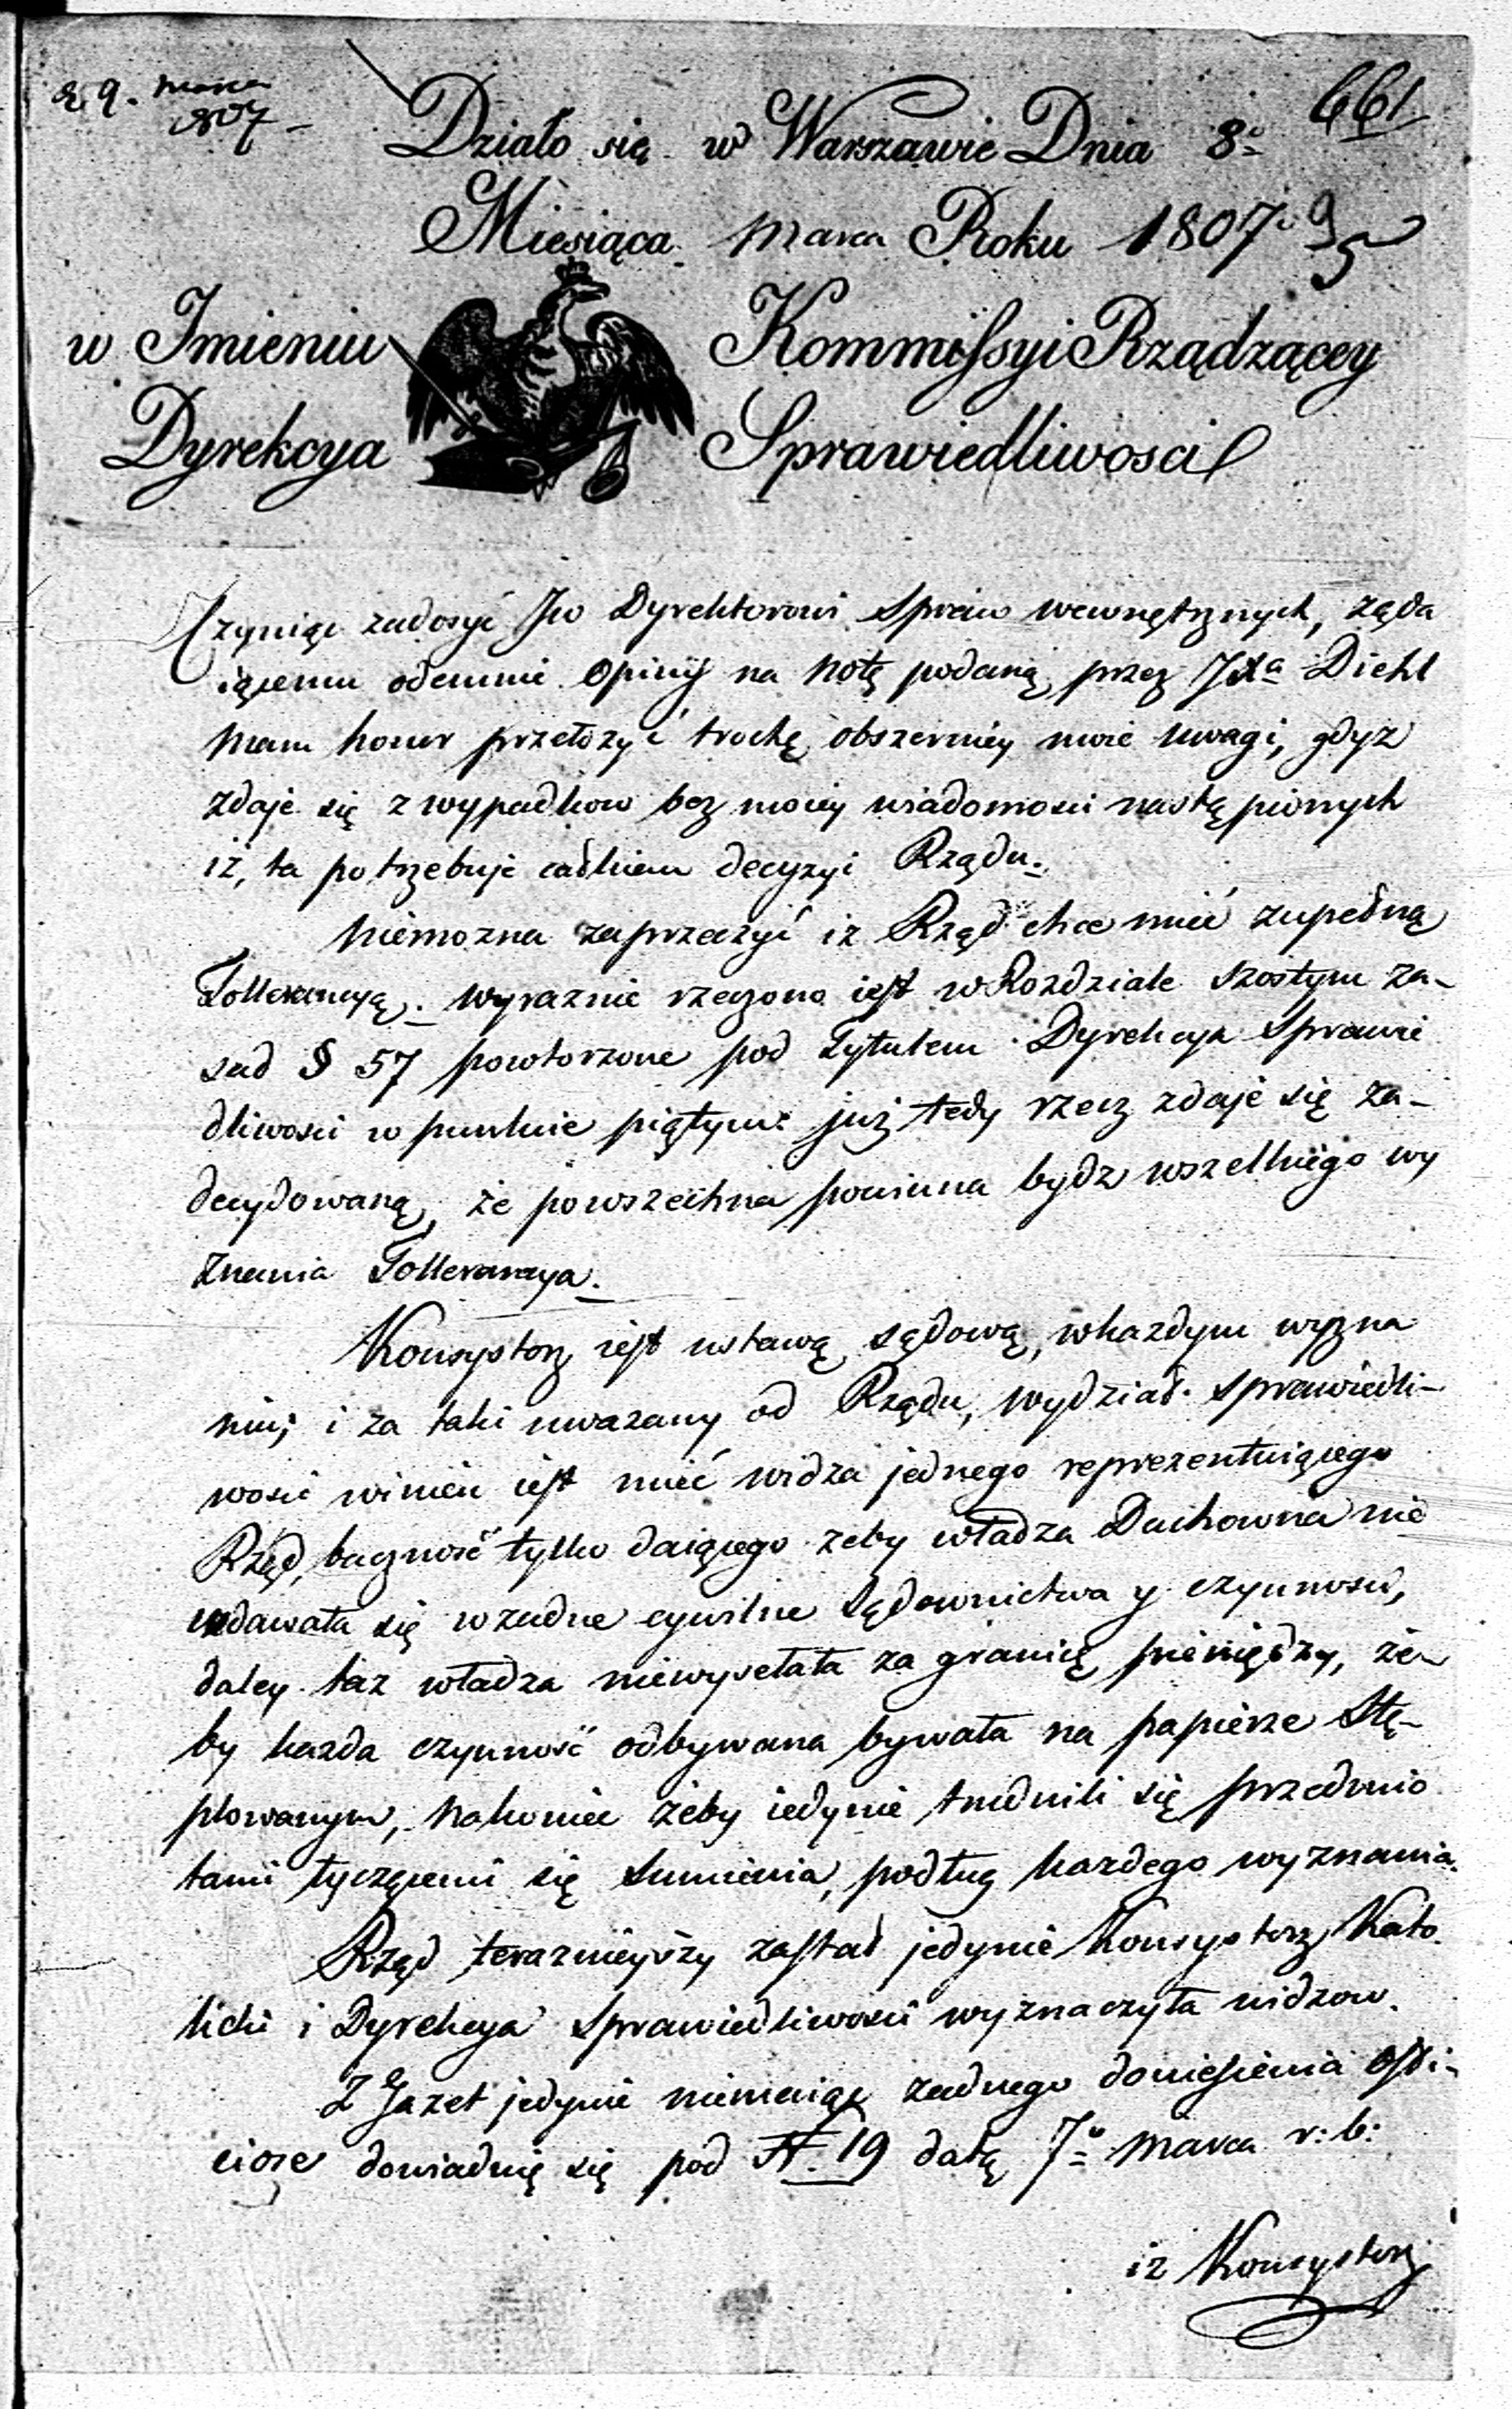 9. marca
807
661
Działo się w Warszawie Dnia 8º
Miesiąca marca Roku 1807º
w Imieniu Kommissyi Rządzącey
Dyrekcya Sprawiedliwosci
Czyniąc zadosyć Jw Dyrektorowi Spraw wewnętrznych, żąda
iącemu odemnie Opinij na Notę podaną przez JXa Diehl
mam honor przełożyć trochę obszerniey moie uwagi, gdyz
zdaje się z wypadkow bez moiey wiadomosci nastąpionych
iż, ta potrzebuje całkiem decyzyi Rządu.
Niemozna zaprzeczyć iz Rząd chce mieć zupełną
Tollerancyą. wyraznie rzeczono iest w Rozdziale szostym za-
sad § 57 powtorzone pod Tytułem Dyrekcya Sprawie
dliwosci w punkcie piątym: już tedy rzecz zdaje się za-
decydowaną, że powszechna powinna bydz wszelkiego wy
znania Tollerancya.
Konsystorz iest ustawą sądową, w kazdym wyzna
niu; i za taki uwazany od Rządu, wydział sprawiedli-
wosci winien iest mieć widza jednego reprezentuiącego
Rząd, bacznosć tylko daiącego zeby władza Duchowna nie
wdawała się w zadne cywilne Sądownictwa y czynnosci,
daley taz władza niewysełała za granicę pieniędzy, że-
by kazda czynnosć odbywana bywała na papierze Stę-
plowanym, nakoniec żeby iedynie trudnili się przedmio
tami tyczącemi się Sumienia, podług kazdego wyznania.
Rząd terazniejszy zastał jedynie Konsystorz Kato
licki i Dyrekcya Sprawiedliwosci wyznaczyła widzow.
Z Gazet jedynie niemaiąc zadnego doniesienia offi-
ciose dowiaduię się pod N. 19 datą 7º marca r: b:
iz Konsystorz